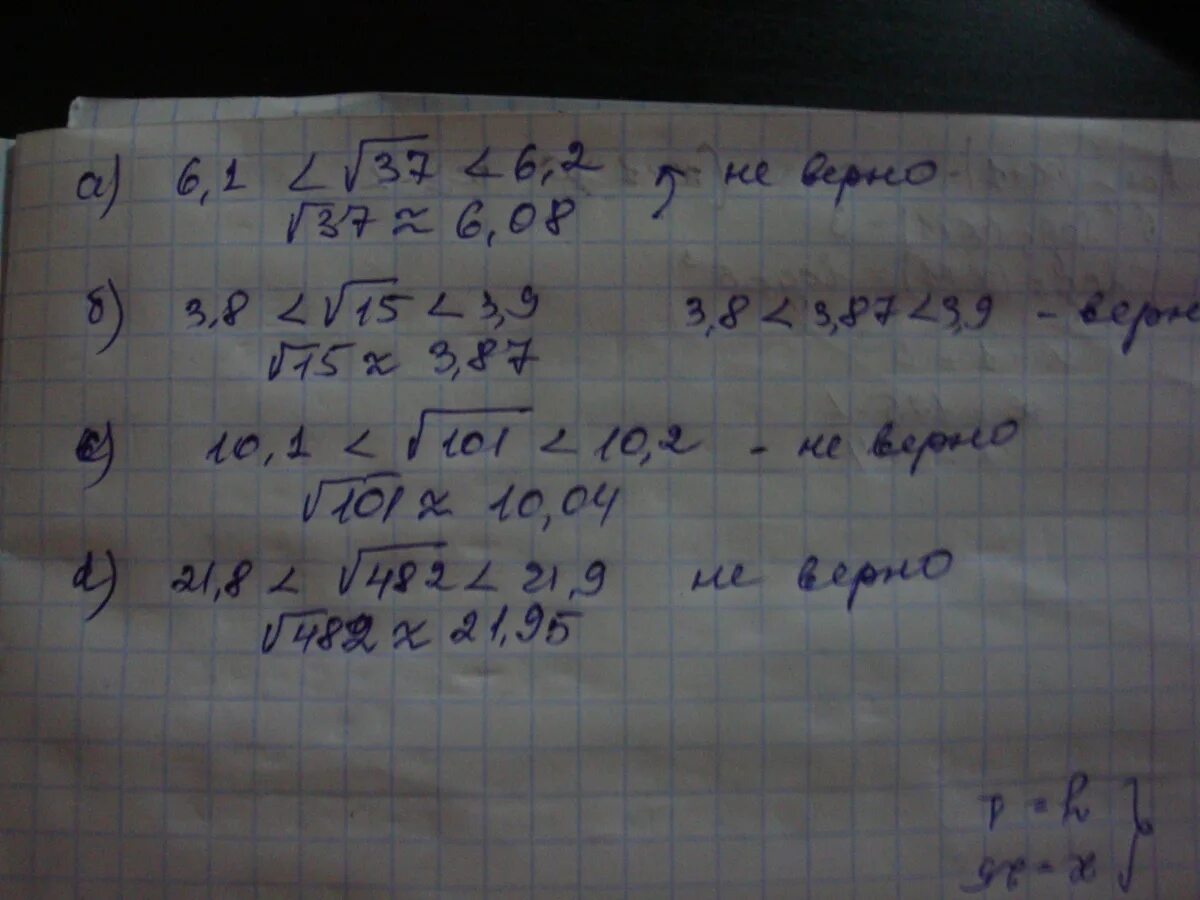 а) 6,1 < √37 < 6,2 не верно
√37 ≈ 6,08
б) 3,8 < √15 < 3,9 3,8 < 3,87 < 3,9 - верн
√15 ≈ 3,87
с) 10,1 < √101 < 10,2 - не верно
√101 ≈ 10,04
d) 21,8 < √482 < 21,9 не верно
√482 ≈ 21,95